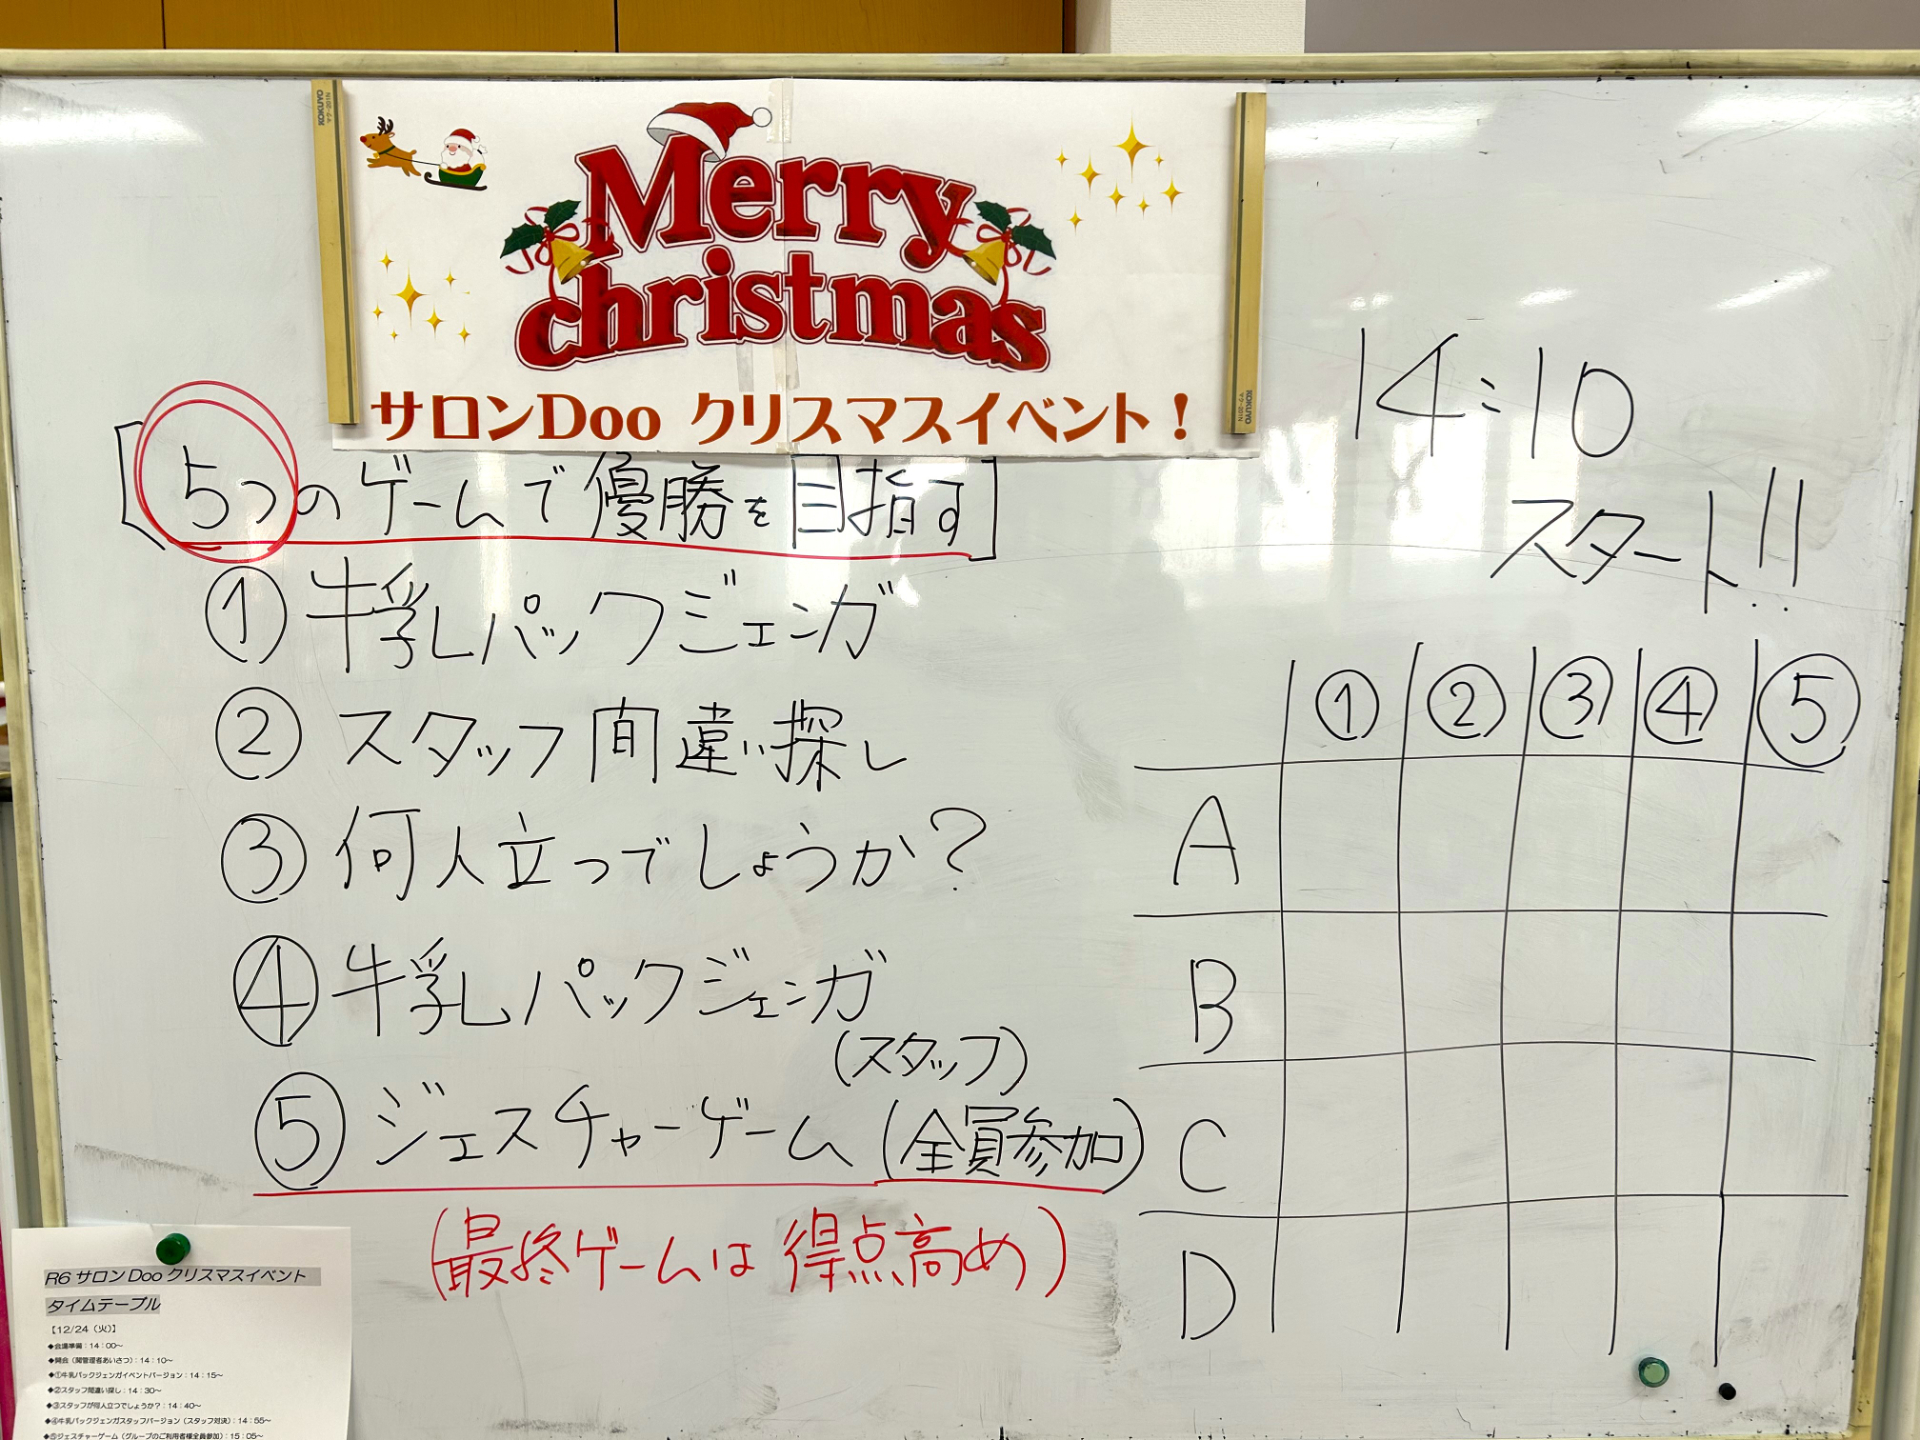 Merry
christmas
サロンDoo クリスマスイベント！
14:10
スタート!!
[5つのゲームで優勝を目指す]
① 牛乳パックジェンガ
② スタッフ間違い探し
③ 何人立つでしょうか？
④ 牛乳パックジェンガ
(スタッフ)
⑤ ジェスチャーゲーム (全員参加)
(最終ゲームは得点高め)
① ② ③ ④ ⑤
A
B
C
D
R6 サロン Doo クリスマスイベント
タイムテーブル
【12/24（火）】
◆会場準備：14：00～
◆開会（関管理者あいさつ）：14：10～
◆①牛乳パックジェンガイベントバージョン：14：15～
◆②スタッフ間違い探し：14：30～
◆③スタッフが何人立つでしょうか？：14：40～
◆④牛乳パックジェンガスタッフバージョン（スタッフ対決）：14：55～
◆⑤ジェスチャーゲーム（グループのご利用者様全員参加）：15：05～
KOKUYO
KOKUYO